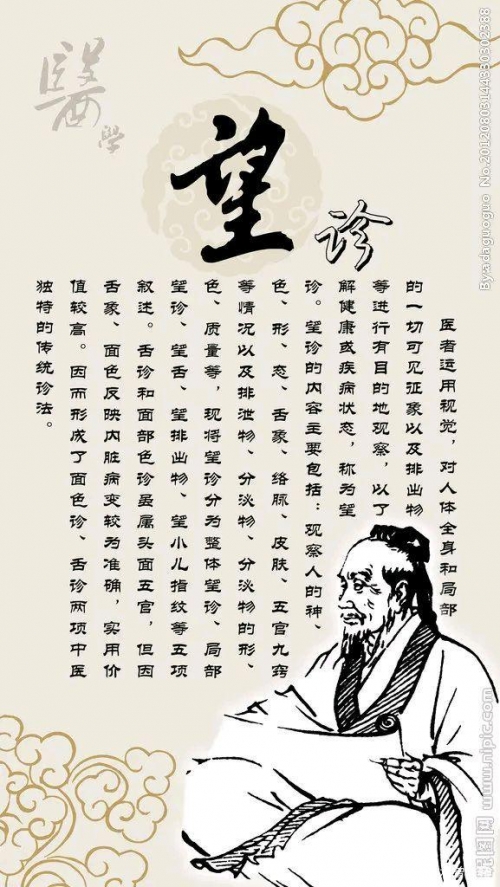 醫學
望诊
医者运用视觉，对人体全身和局部
的一切可见征象以及排出物
等进行有目的地观察，以了
解健康或疾病状态，称为望
诊。望诊的内容主要包括：观察人的神、
色、形、态、舌象、络脉、皮肤、五官九窍
等情况以及排泄物、分泌物、分泌物的形、
色、质量等，现将望诊分为整体望诊、局部
望诊、望舌、望排出物、望小儿指纹等五项
叙述。舌诊和面部色诊虽属头面五官，但因
舌象、面色反映内脏病变较为准确，实用价
值较高。因而形成了面色诊、舌诊两项中医
独特的传统诊法。
By:adaguoguo No.20120803144330302388
昵图网 www.nipic.com